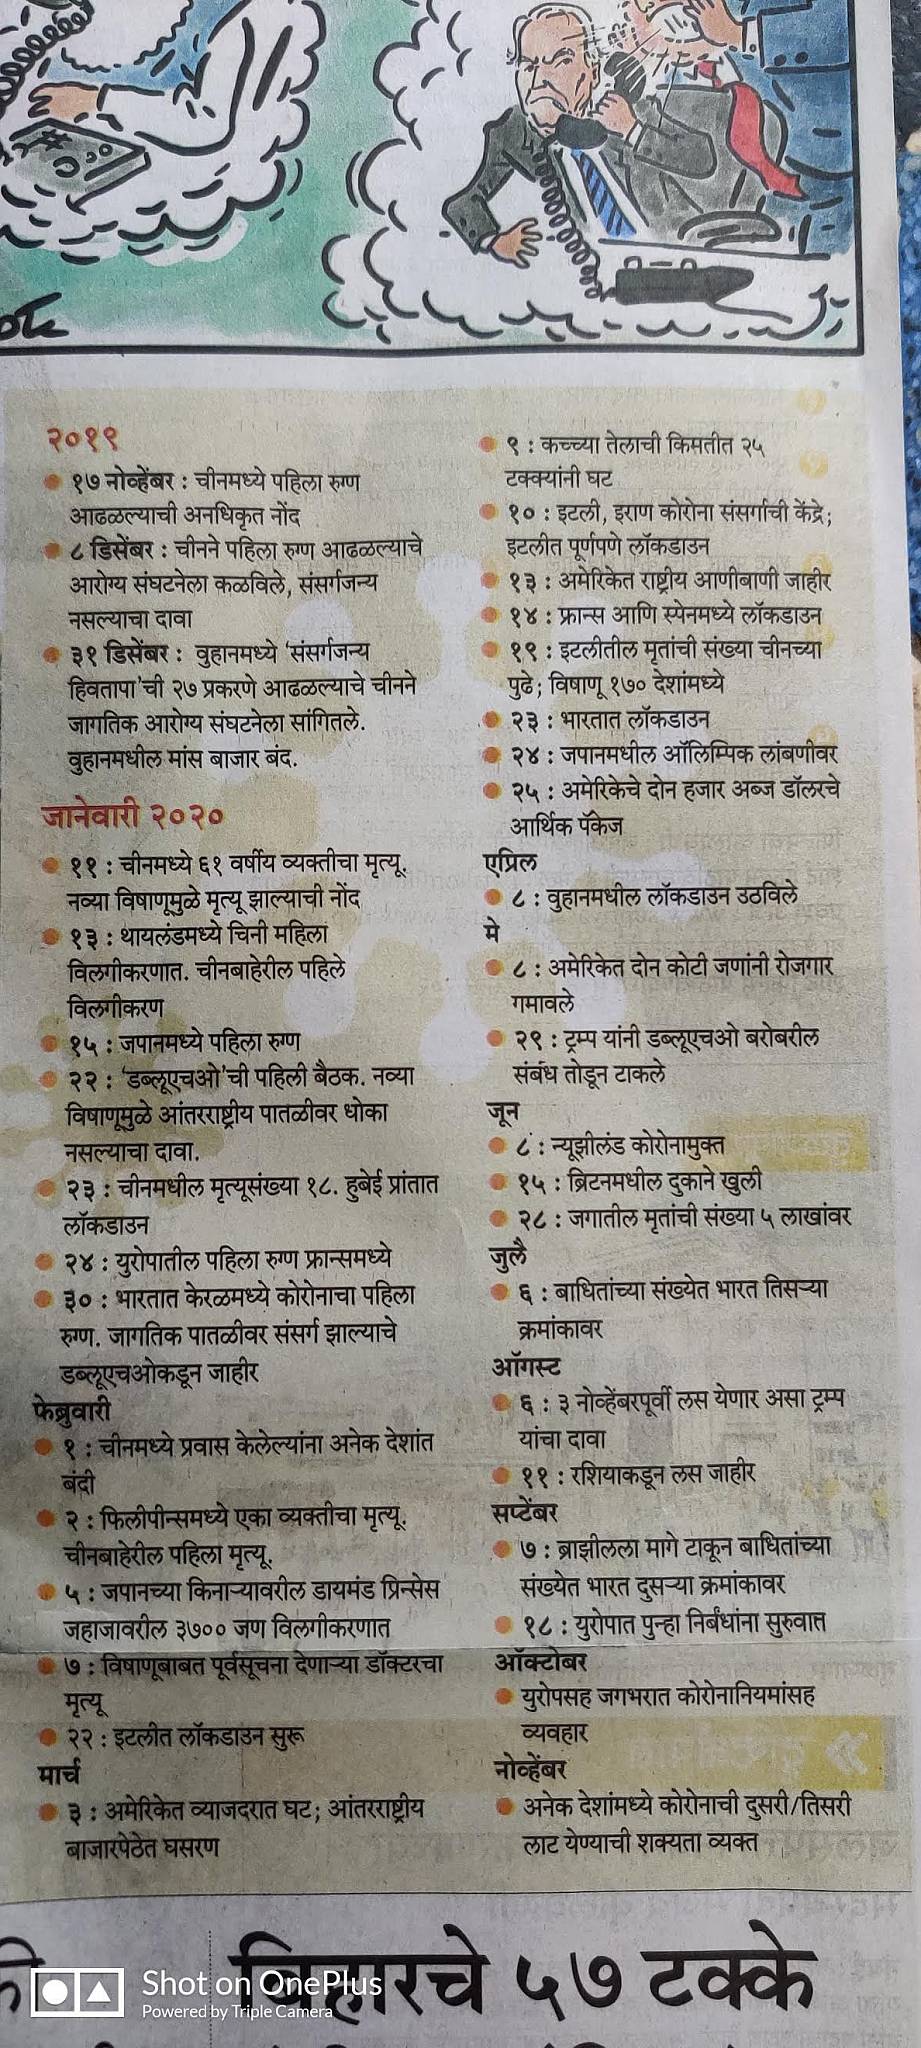 २०१९
१७ नोव्हेंबर : चीनमध्ये पहिला रुग्ण
आढळल्याची अनधिकृत नोंद
८ डिसेंबर : चीनने पहिला रुग्ण आढळल्याचे
आरोग्य संघटनेला कळविले, संसर्गजन्य
नसल्याचा दावा
३१ डिसेंबर : वुहानमध्ये 'संसर्गजन्य
हिवतापा'ची २७ प्रकरणे आढळल्याचे चीनने
जागतिक आरोग्य संघटनेला सांगितले.
वुहानमधील मांस बाजार बंद.
जानेवारी २०२०
११ : चीनमध्ये ६१ वर्षीय व्यक्तीचा मृत्यू.
नव्या विषाणूमुळे मृत्यू झाल्याची नोंद
१३ : थायलंडमध्ये चिनी महिला
विलगीकरणात. चीनबाहेरील पहिले
विलगीकरण
१५ : जपानमध्ये पहिला रुग्ण
२२ : 'डब्लूएचओ'ची पहिली बैठक. नव्या
विषाणूमुळे आंतरराष्ट्रीय पातळीवर धोका
नसल्याचा दावा.
२३ : चीनमधील मृत्यूसंख्या १८. हुबेई प्रांतात
लॉकडाउन
२४ : युरोपातील पहिला रुग्ण फ्रान्समध्ये
३० : भारतात केरळमध्ये कोरोनाचा पहिला
रुग्ण. जागतिक पातळीवर संसर्ग झाल्याचे
डब्लूएचओकडून जाहीर
फेब्रुवारी
१ : चीनमध्ये प्रवास केलेल्यांना अनेक देशांत
बंदी
२ : फिलीपीन्समध्ये एका व्यक्तीचा मृत्यू.
चीनबाहेरील पहिला मृत्यू.
५ : जपानच्या किनाऱ्यावरील डायमंड प्रिन्सेस
जहाजावरील ३७०० जण विलगीकरणात
७ : विषाणूबाबत पूर्वसूचना देणाऱ्या डॉक्टरचा
मृत्यू
२२ : इटलीत लॉकडाउन सुरू
मार्च
३ : अमेरिकेत व्याजदरात घट; आंतरराष्ट्रीय
बाजारपेठेत घसरण
९ : कच्च्या तेलाची किमतीत २५
टक्क्यांनी घट
१० : इटली, इराण कोरोना संसर्गाची केंद्रे;
इटलीत पूर्णपणे लॉकडाउन
१३ : अमेरिकेत राष्ट्रीय आणीबाणी जाहीर
१४ : फ्रान्स आणि स्पेनमध्ये लॉकडाउन
१९ : इटलीतील मृतांची संख्या चीनच्या
पुढे; विषाणू १७० देशांमध्ये
२३ : भारतात लॉकडाउन
२४ : जपानमधील ऑलिम्पिक लांबणीवर
२५ : अमेरिकेचे दोन हजार अब्ज डॉलरचे
आर्थिक पॅकेज
एप्रिल
८ : वुहानमधील लॉकडाउन उठविले
मे
८ : अमेरिकेत दोन कोटी जणांनी रोजगार
गमावले
२९ : ट्रम्प यांनी डब्लूएचओ बरोबरील
संबंध तोडून टाकले
जून
८ : न्यूझीलंड कोरोनामुक्त
१५ : ब्रिटनमधील दुकाने खुली
२८ : जगातील मृतांची संख्या ५ लाखांवर
जुलै
६ : बाधितांच्या संख्येत भारत तिसऱ्या
क्रमांकावर
ऑगस्ट
६ : ३ नोव्हेंबरपूर्वी लस येणार असा ट्रम्प
यांचा दावा
११ : रशियाकडून लस जाहीर
सप्टेंबर
७ : ब्राझीलला मागे टाकून बाधितांच्या
संख्येत भारत दुसऱ्या क्रमांकावर
१८ : युरोपात पुन्हा निर्बंधांना सुरुवात
ऑक्टोबर
युरोपसह जगभरात कोरोनानियमांसह
व्यवहार
नोव्हेंबर
अनेक देशांमध्ये कोरोनाची दुसरी/तिसरी
लाट येण्याची शक्यता व्यक्त
बिहारचे ५७ टक्के
Shot on OnePlus
Powered by Triple Camera